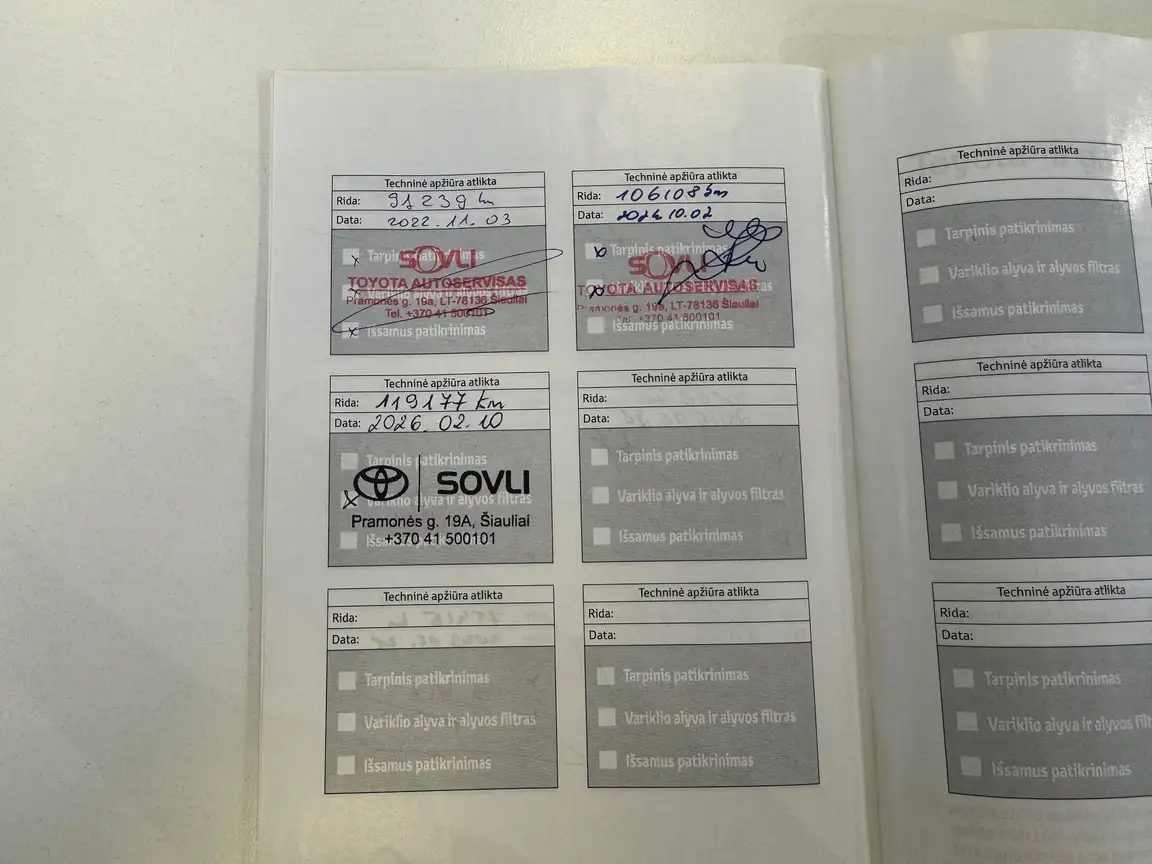 Techninė apžiūra atlikta
Rida: 91239 km
Data: 2022.11.03
Tarpinis patikrinimas
SOVLI
TOYOTA AUTOSERVISAS
Variklio alyva ir alyvos filtras
Pramonės g. 19a, LT-78136 Šiauliai
Tel. +370 41 500101
Išsamus patikrinimas
Techninė apžiūra atlikta
Rida: 106108 km
Data: 2024.10.02
Tarpinis patikrinimas
SOVLI
TOYOTA AUTOSERVISAS
Pramonės g. 19a, LT-78136 Šiauliai
Tel. +370 41 500101
Išsamus patikrinimas
Techninė apžiūra atlikta
Rida: 119177 km
Data: 2026.02.10
Tarpinis patikrinimas
SOVLI
Variklio alyva ir alyvos filtras
Pramonės g. 19A, Šiauliai
+370 41 500101
Techninė apžiūra atlikta
Rida:
Data:
Tarpinis patikrinimas
Variklio alyva ir alyvos filtras
Išsamus patikrinimas
Techninė apžiūra atlikta
Rida:
Data:
Tarpinis patikrinimas
Variklio alyva ir alyvos filtras
Išsamus patikrinimas
Techninė apžiūra atlikta
Rida:
Data:
Tarpinis patikrinimas
Variklio alyva ir alyvos filtras
Išsamus patikrinimas
Techninė apžiūra atlikta
Rida:
Data:
Tarpinis patikrinimas
Variklio alyva ir alyvos filtras
Išsamus patikrinimas
Techninė apžiūra atlikta
Rida:
Data:
Tarpinis patikrinimas
Variklio alyva ir alyvos filtras
Išsamus patikrinimas
Techninė apžiūra atlikta
Rida:
Data:
Tarpinis patikrinimas
Variklio alyva ir alyvos
Išsamus patikrinimas